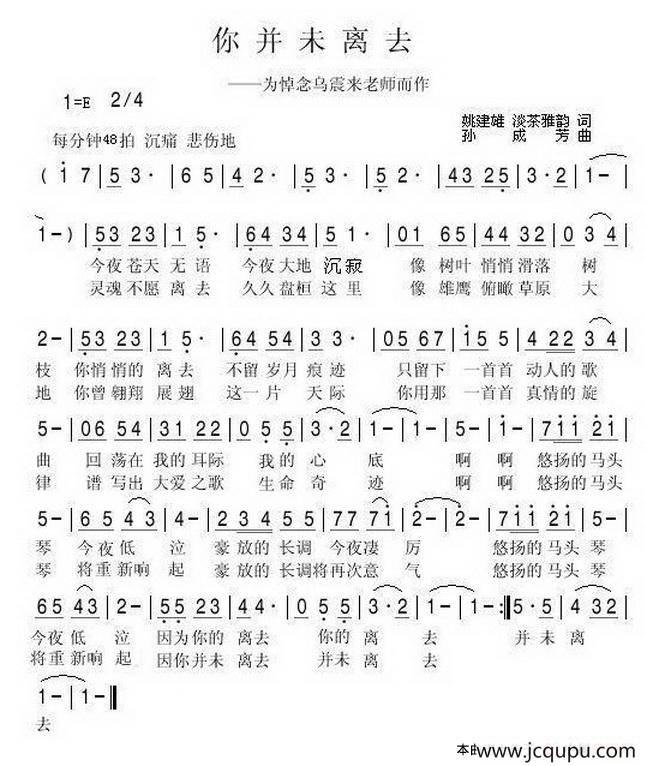 你并未离去
——为悼念乌震来老师而作
1=E 2/4
姚建雄 淡茶雅韵 词
每分钟48拍 沉痛 悲伤地
孙成芳 曲
( i 7 | 5 3· | 6 5 | 4 2· | 5 3· | 5 2· | 43 25 | 3 2· | 1- |
1-) | 53 23 | 1 5· | 64 34 | 5 1· | 01 65 | 45 44 | 32 | 0 3 4 |
今夜苍天 无语 今夜大地 沉寂 像 树叶 悄悄 滑落 树
灵魂不愿 离去 久久盘桓 这里 像 雄鹰 俯瞰 草原 大
2- | 53 23 | 1 5· | 64 54 | 3· | 05 67 | i5 5 | 4 22 | 3 4 |
枝 你悄悄的 离去 不留岁月 痕迹 只留下 一首首 动人的 歌
地 你曾翱翔 展翅 这一片 天际 你用那 一首首 真情的 旋
5- | 06 54 | 31 22 | 0 5 5 | 3·2 | 1- | 1- | 5- | 2- | 7ii 2i |
曲 回荡在 我的耳际 我的 心 底 啊 啊 悠扬的 马头
律 谱写出 大爱之歌 生命 奇 迹 啊 啊 悠扬的 马头
5- | 6 5 4 3 | 4- | 2 3 4 5 5 | 77 7i | 2- | 2- | 7ii 2i | 5- |
琴 今夜低 泣 豪放的 长调 今夜凄 厉 悠扬的 马头 琴
琴 将重新响 起 豪放的 长调将再次意 气 悠扬的 马头 琴
65 43 | 2- | 55 23 | 44· | 0 5 5 | 3·2 | 1- | 1- :‖ 5·5 | 4 32 |
今夜低 泣 因为你的 离去 你的 离 去 并未 离
将重新响 起 因你并未 离去 并未 离 去
1- | 1- ‖
去
本曲 www.jcqupu.com